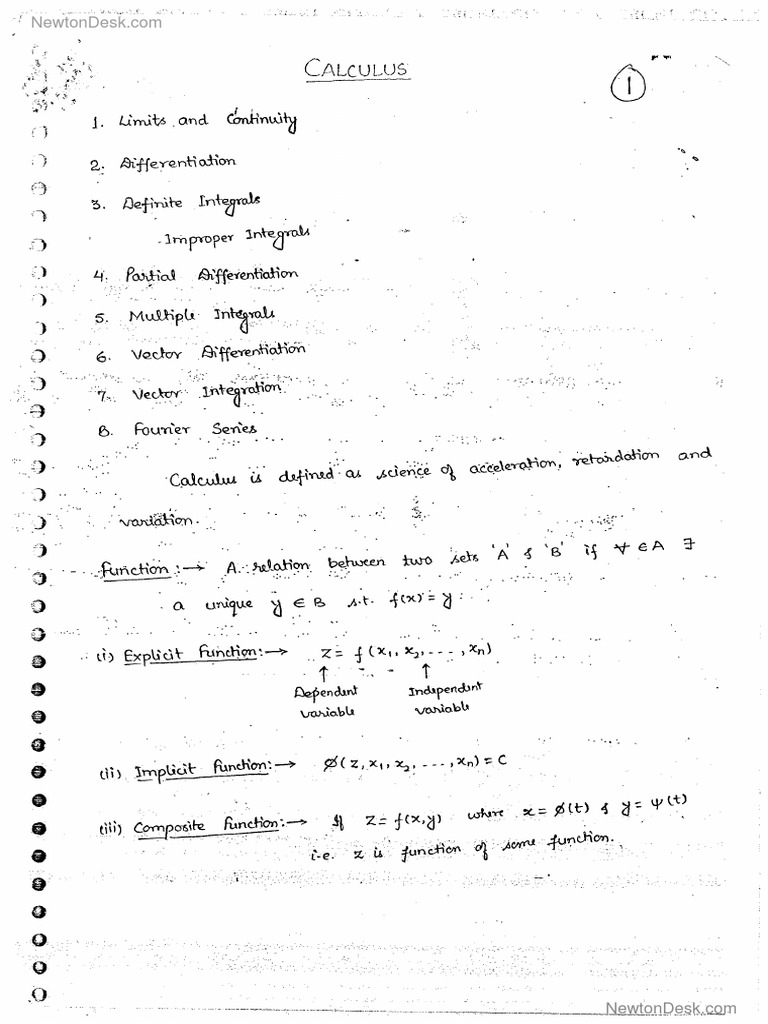 NewtonDesk.com
CALCULUS
1
1. Limits and Continuity
2. Differentiation
3. Definite Integrals
Improper Integrals
4. Partial Differentiation
5. Multiple Integrals
6. Vector Differentiation
7. Vector Integration
8. Fourier Series
Calculus is defined as science of acceleration, retardation and
variation.
Function :→ A relation between two sets 'A' & 'B' if ∀ ∈ A ∃
a unique y ∈ B s.t. f(x) = y.
(i) Explicit Function:→ z = f(x₁, x₂, ---, xₙ)
↑ ↑
Dependent Independent
variable variable
(ii) Implicit Function:→ ∅(z, x₁, x₂, ---, xₙ) = C
(iii) Composite Function:→ If z = f(x,y) where x = ∅(t) & y = ψ(t)
i.e. z is function of some function.
NewtonDesk.com